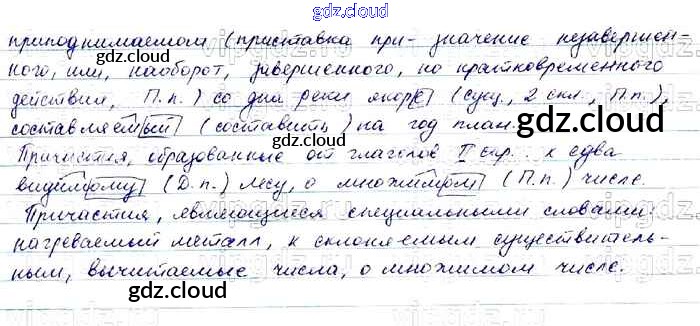 gdz.cloud
приподнимаемом (приставка при- значение незавершен-
ного, или, наоборот, завершенного, но кратковременного
действия, П.п.) со дна реки якоре (сущ., 2 скл., П.п.),
составляемый (составить) на год план.
gdz.cloud
gdz.cloud
Причастия, образованные от глаголов II спр.: к едва
видимому (Д.п.) лесу, о множимом (П.п.) числе.
Причастия, являющиеся специальными словами:
нагреваемый металл, к склоняемым существитель-
ным, вычитаемые числа, о множимом числе.
gdz.cloud
gdz.cloud